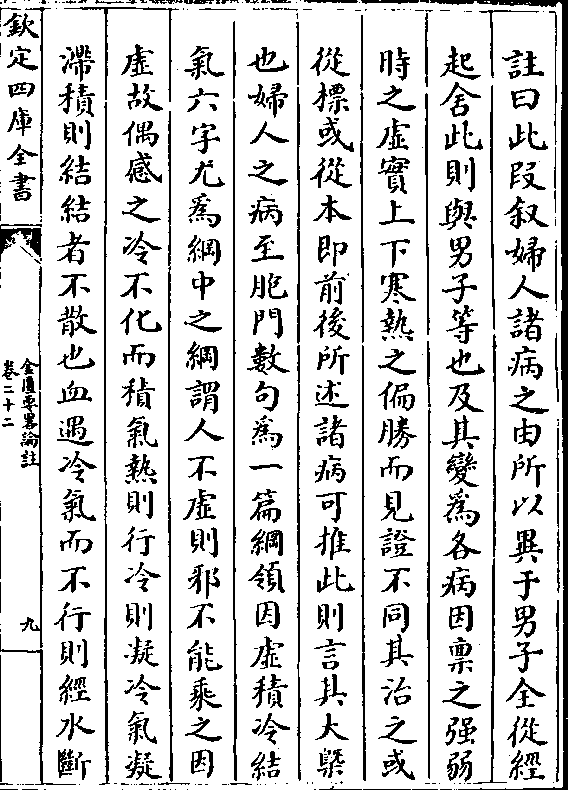 註曰此段叙婦人諸病之由所以異于男子全從經
起舍此則與男子等也及其變為各病因禀之强弱
時之虛實上下寒熱之偏勝而見證不同其治之或
從標或從本即前後所述諸病可推此則言其大槩
也婦人之病至胞門數句為一篇綱領因虛積冷結
氣六字尤為綱中之綱謂人不虛則邪不能乘之因
虛故偶感之冷不化而積氣熱則行冷則凝冷氣凝
滯積則結結者不散也血遇冷氣而不行則經水斷
欽定四庫全書
金匱要畧論註
卷二十二
九